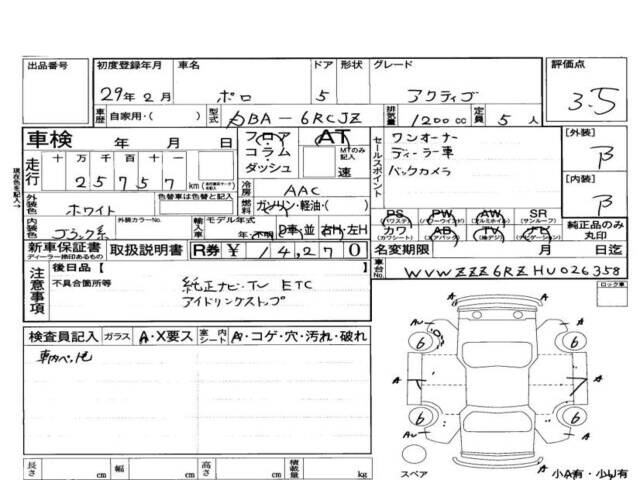 出品番号 初度登録年月 車名 ドア 形状 グレード 評価点
29年2月 ポロ 5 アクティブ 3.5
車歴 自家用・( ) 型式 DBA-6RCJZ 排気量 1200cc 定員 5人
車検 年 月 日 フロア AT セールスポイント ワンオーナー [外装] B
コラム・ MTのみ記入 ディーラー車
ダッシュ 速 バックカメラ [内装] B
現在色を記入→
走行 十 万 千 百 十 一
25757 km
冷房 AAC
外装色 ホワイト 色替車は色替と記入 燃料 ガソリン・軽油・( )
PS PW AW SR 純正品のみ丸印
(パワステ) (パワーウインド) (アルミホイル) (サンルーフ)
内装色 ブラック系 外装カラーNo. 輸入車 モデル年式 年・不明 D車・並 右H・左H
カワ AB TV ナビ
(カワシート) (エアバック) (純デジ) (ナビゲーション)
新車保証書 取扱説明書 R券 ¥14,270 名変期限 月 日
ディーラー捺印あるもの
車台No. WVWZZZ6RZHU026358
注意事項 後日品【 】
不具合箇所等 純正ナビ・TV ETC
アイドリングストップ
ロック車
検査員記入 ガラス A・X要ス 室内シート A・コゲ・穴・汚れ・破れ
A A
6 6
A A
6 6
A A
スペア 小A有・小U有
長さ cm 幅 cm 高さ cm 積載量 kg